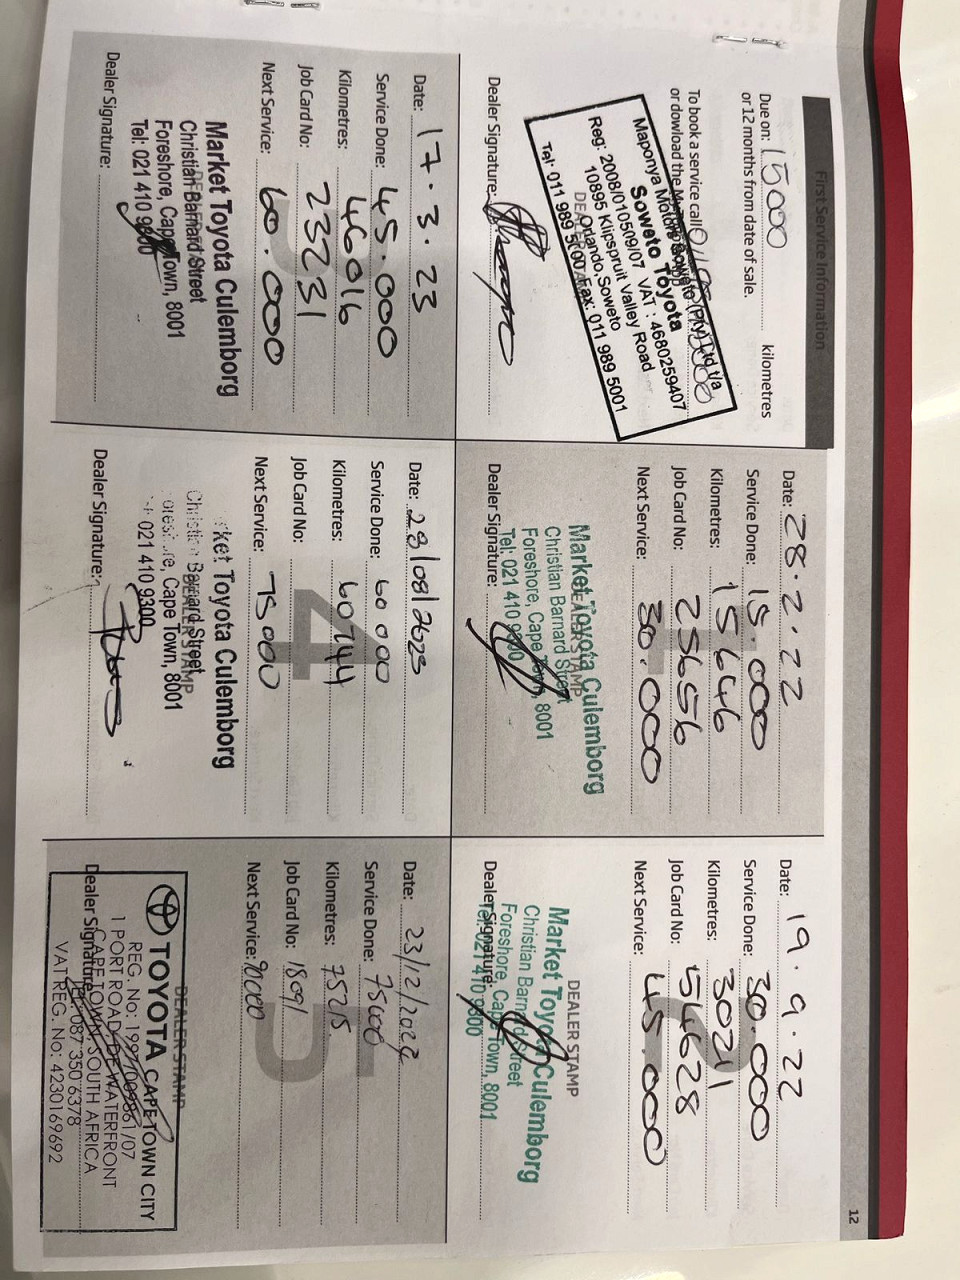 12
First Service Information
Due on: 15000 kilometres
or 12 months from date of sale.
To book a service call
or dowload the
Maponya Motors Soweto (Pty) Ltd t/a
Soweto Toyota
Reg: 2008/010509/07 VAT : 4680259407
10895 Klipspruit Valley Road
Orlando, Soweto
Tel: 011 989 5000 Fax: 011 989 5001
Dealer Signature:
Date: 28.2.22
Service Done: 15.000
Kilometres: 15646
Job Card No: 25656
Next Service: 30.000
DEALER STAMP
Market Toyota Culemborg
Christian Barnard Street
Foreshore, Cape Town, 8001
Tel: 021 410 9300
Dealer Signature:
Date: 19.9.22
Service Done: 30.000
Kilometres: 30211
Job Card No: 54628
Next Service: 45.000
DEALER STAMP
Market Toyota Culemborg
Christian Barnard Street
Foreshore, Cape Town, 8001
Tel: 021 410 9300
Dealer Signature:
Date: 17.3.23
Service Done: 45.000
Kilometres: 46016
Job Card No: 23231
Next Service: 60.000
Market Toyota Culemborg
Christian Barnard Street
Foreshore, Cape Town, 8001
Tel: 021 410 9300
Dealer Signature:
4
Date: 28/08/2023
Service Done: 60 000
Kilometres: 60744
Job Card No:
Next Service: 75000
DEALER STAMP
ket Toyota Culemborg
Christian Barnard Street
ores re, Cape Town, 8001
021 410 9300
Dealer Signature:
5
Date: 23/12/202
Service Done: 75000
Kilometres: 75215
Job Card No: 18091
Next Service: 90000
DEALER STAMP
TOYOTA CAPE TOWN CITY
REG. No: 1997/009861/07
1 PORT ROAD DE WATERFRONT
CAPE TOWN, SOUTH AFRICA
Tel: 087 350 6378
VAT REG. No: 4230169692
Dealer Signature: